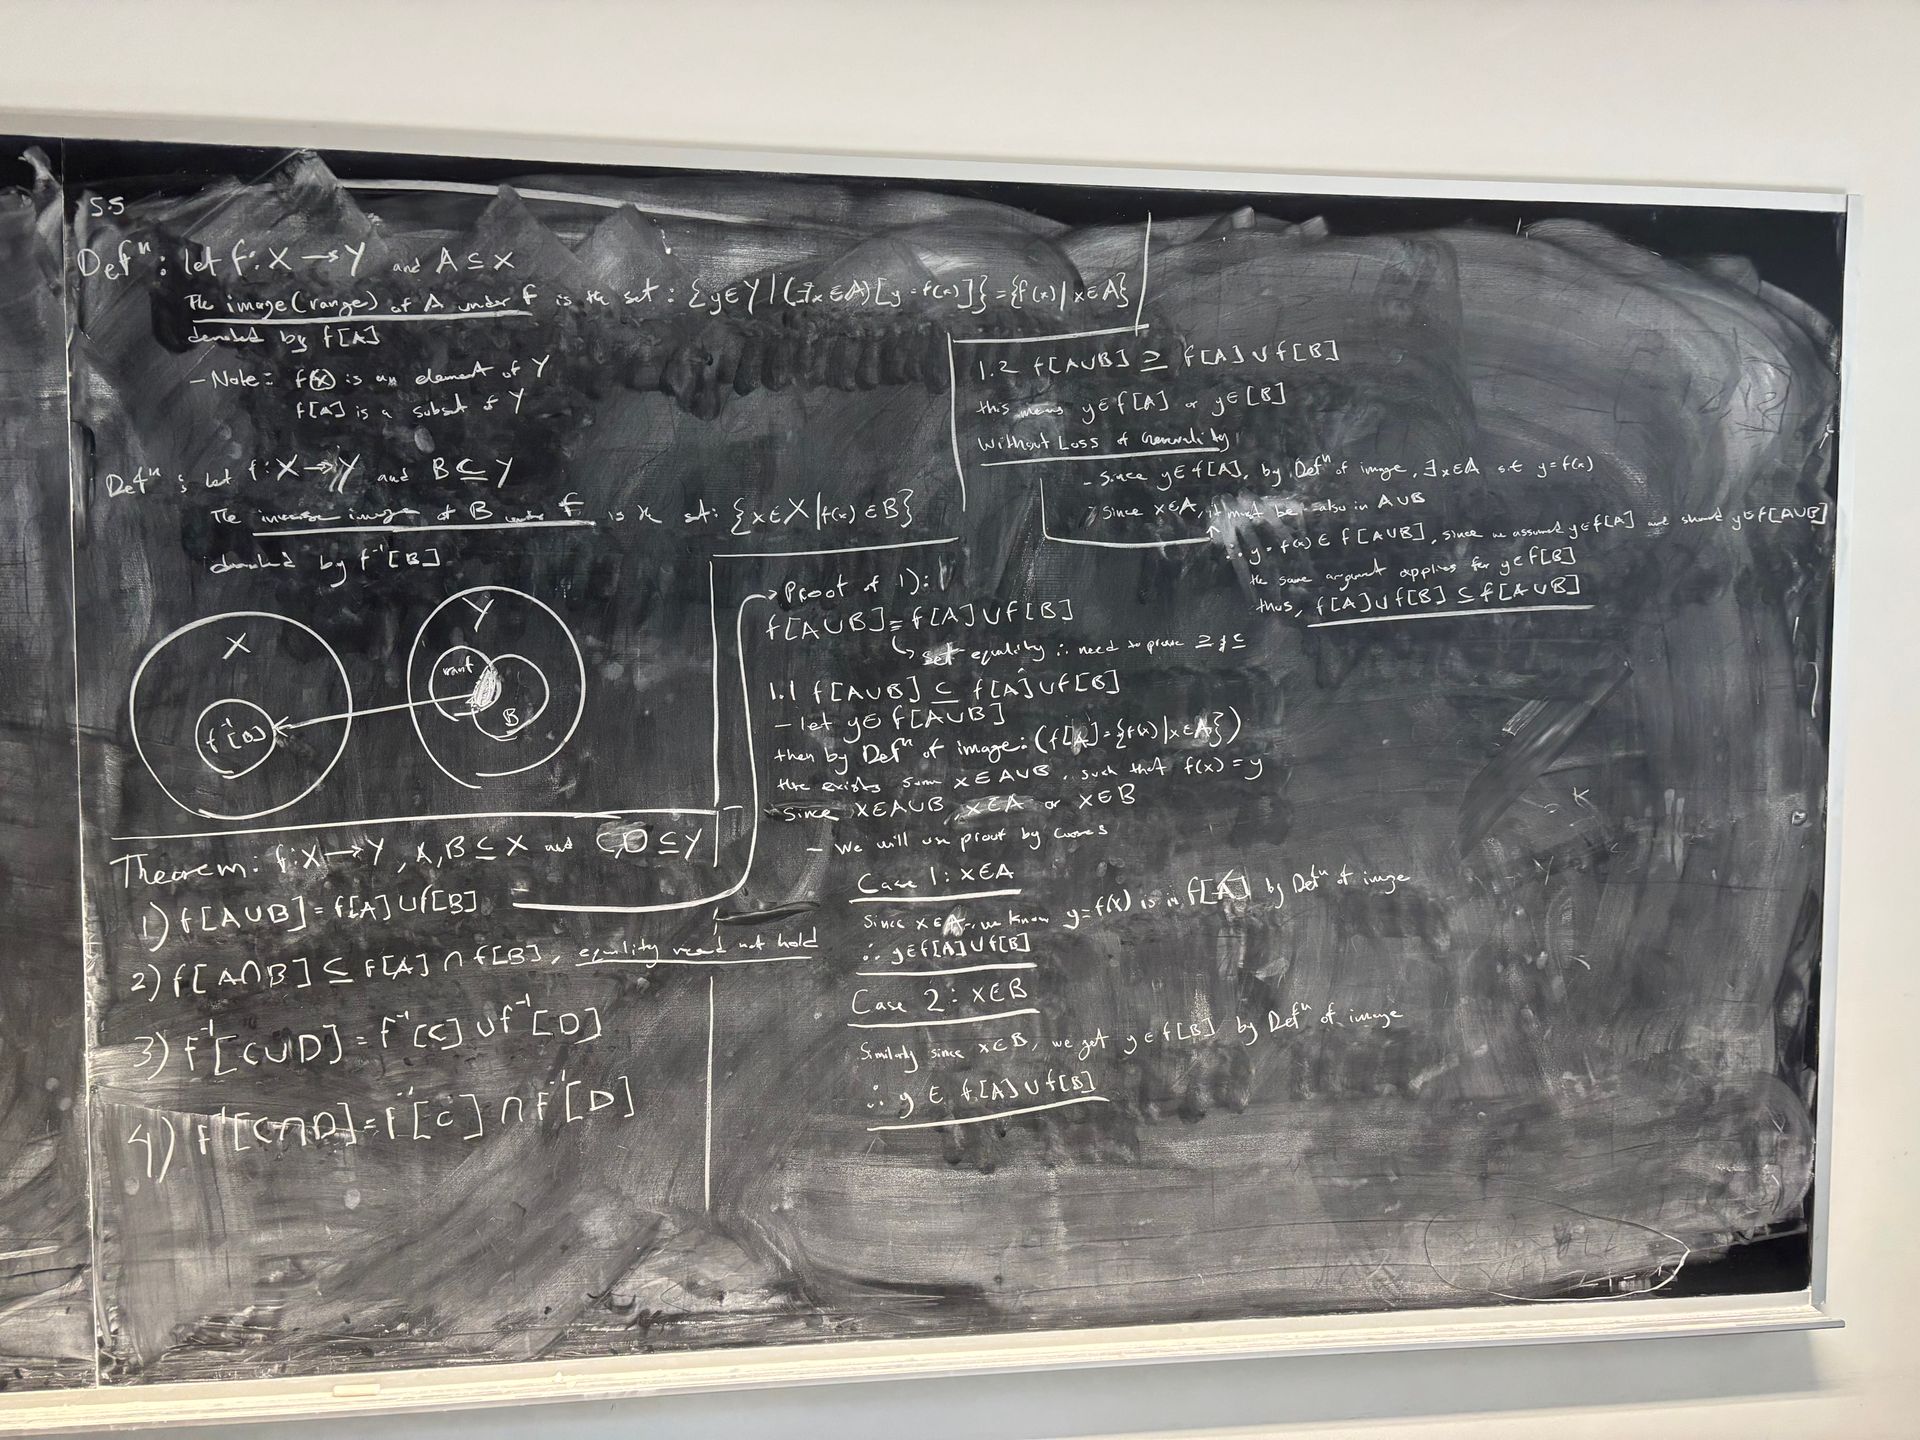 5.5
Defⁿ: let f: X → Y and A ⊆ X
The image (range) of A under f is the set: {y ∈ Y | (∃x ∈ A) [y = f(x)]} = {f(x) | x ∈ A}
denoted by f[A]
- Note: f(x) is an element of Y
f[A] is a subset of Y
Defⁿ: let f: X → Y and B ⊆ Y
The inverse image of B under f is the set: {x ∈ X | f(x) ∈ B}
denoted by f⁻¹[B]
X
f⁻¹[B]
Y
B
Theorem: f: X → Y, A, B ⊆ X and C, D ⊆ Y
1) f[A∪B] = f[A] ∪ f[B]
2) f[A∩B] ⊆ f[A] ∩ f[B], equality need not hold
3) f⁻¹[C∪D] = f⁻¹[C] ∪ f⁻¹[D]
4) f⁻¹[C∩D] = f⁻¹[C] ∩ f⁻¹[D]
Proof of 1):
f[A∪B] = f[A] ∪ f[B]
set equality ∴ need to prove ⊇ & ⊆
1.1 f[A∪B] ⊆ f[A] ∪ f[B]
- let y ∈ f[A∪B]
then by Defⁿ of image: (f[A] = {f(x) | x ∈ A})
there exists some x ∈ A∪B, such that f(x) = y
Since x ∈ A∪B, x ∈ A or x ∈ B
- We will use proof by cases
Case 1: x ∈ A
Since x ∈ A, we know y = f(x) is in f[A] by Defⁿ of image
∴ y ∈ f[A] ∪ f[B]
Case 2: x ∈ B
Similarly since x ∈ B, we get y ∈ f[B] by Defⁿ of image
∴ y ∈ f[A] ∪ f[B]
1.2 f[A∪B] ⊇ f[A] ∪ f[B]
this means y ∈ f[A] or y ∈ [B]
Without Loss of Generality
- Since y ∈ f[A], by Defⁿ of image, ∃x ∈ A s.t y = f(x)
- Since x ∈ A, it must be also in A∪B
∴ y = f(x) ∈ f[A∪B], since we assumed y ∈ f[A] and showed y ∈ f[A∪B]
the same argument applies for y ∈ f[B]
thus, f[A] ∪ f[B] ⊆ f[A∪B]